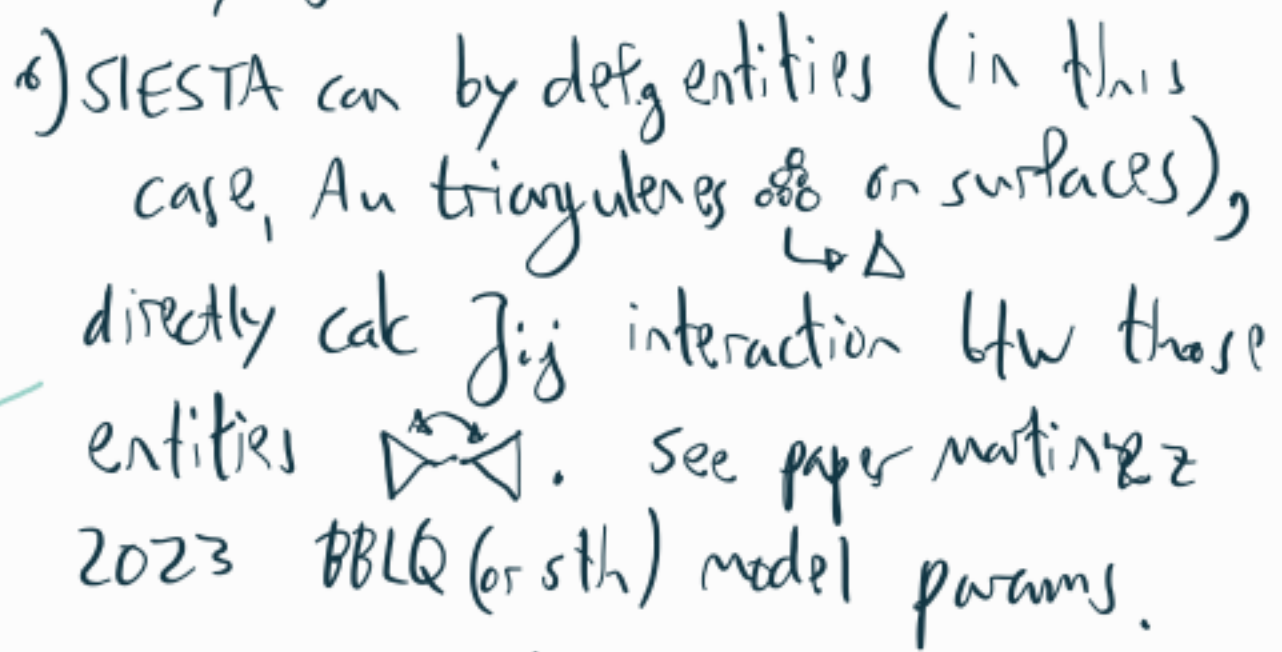 6) SIESTA can by defg entities (in this
case, Au triangulenes on surfaces),
directly calc Jij interaction btw those
entities . see paper Martinez
2023 BBLQ (or sth) model params.